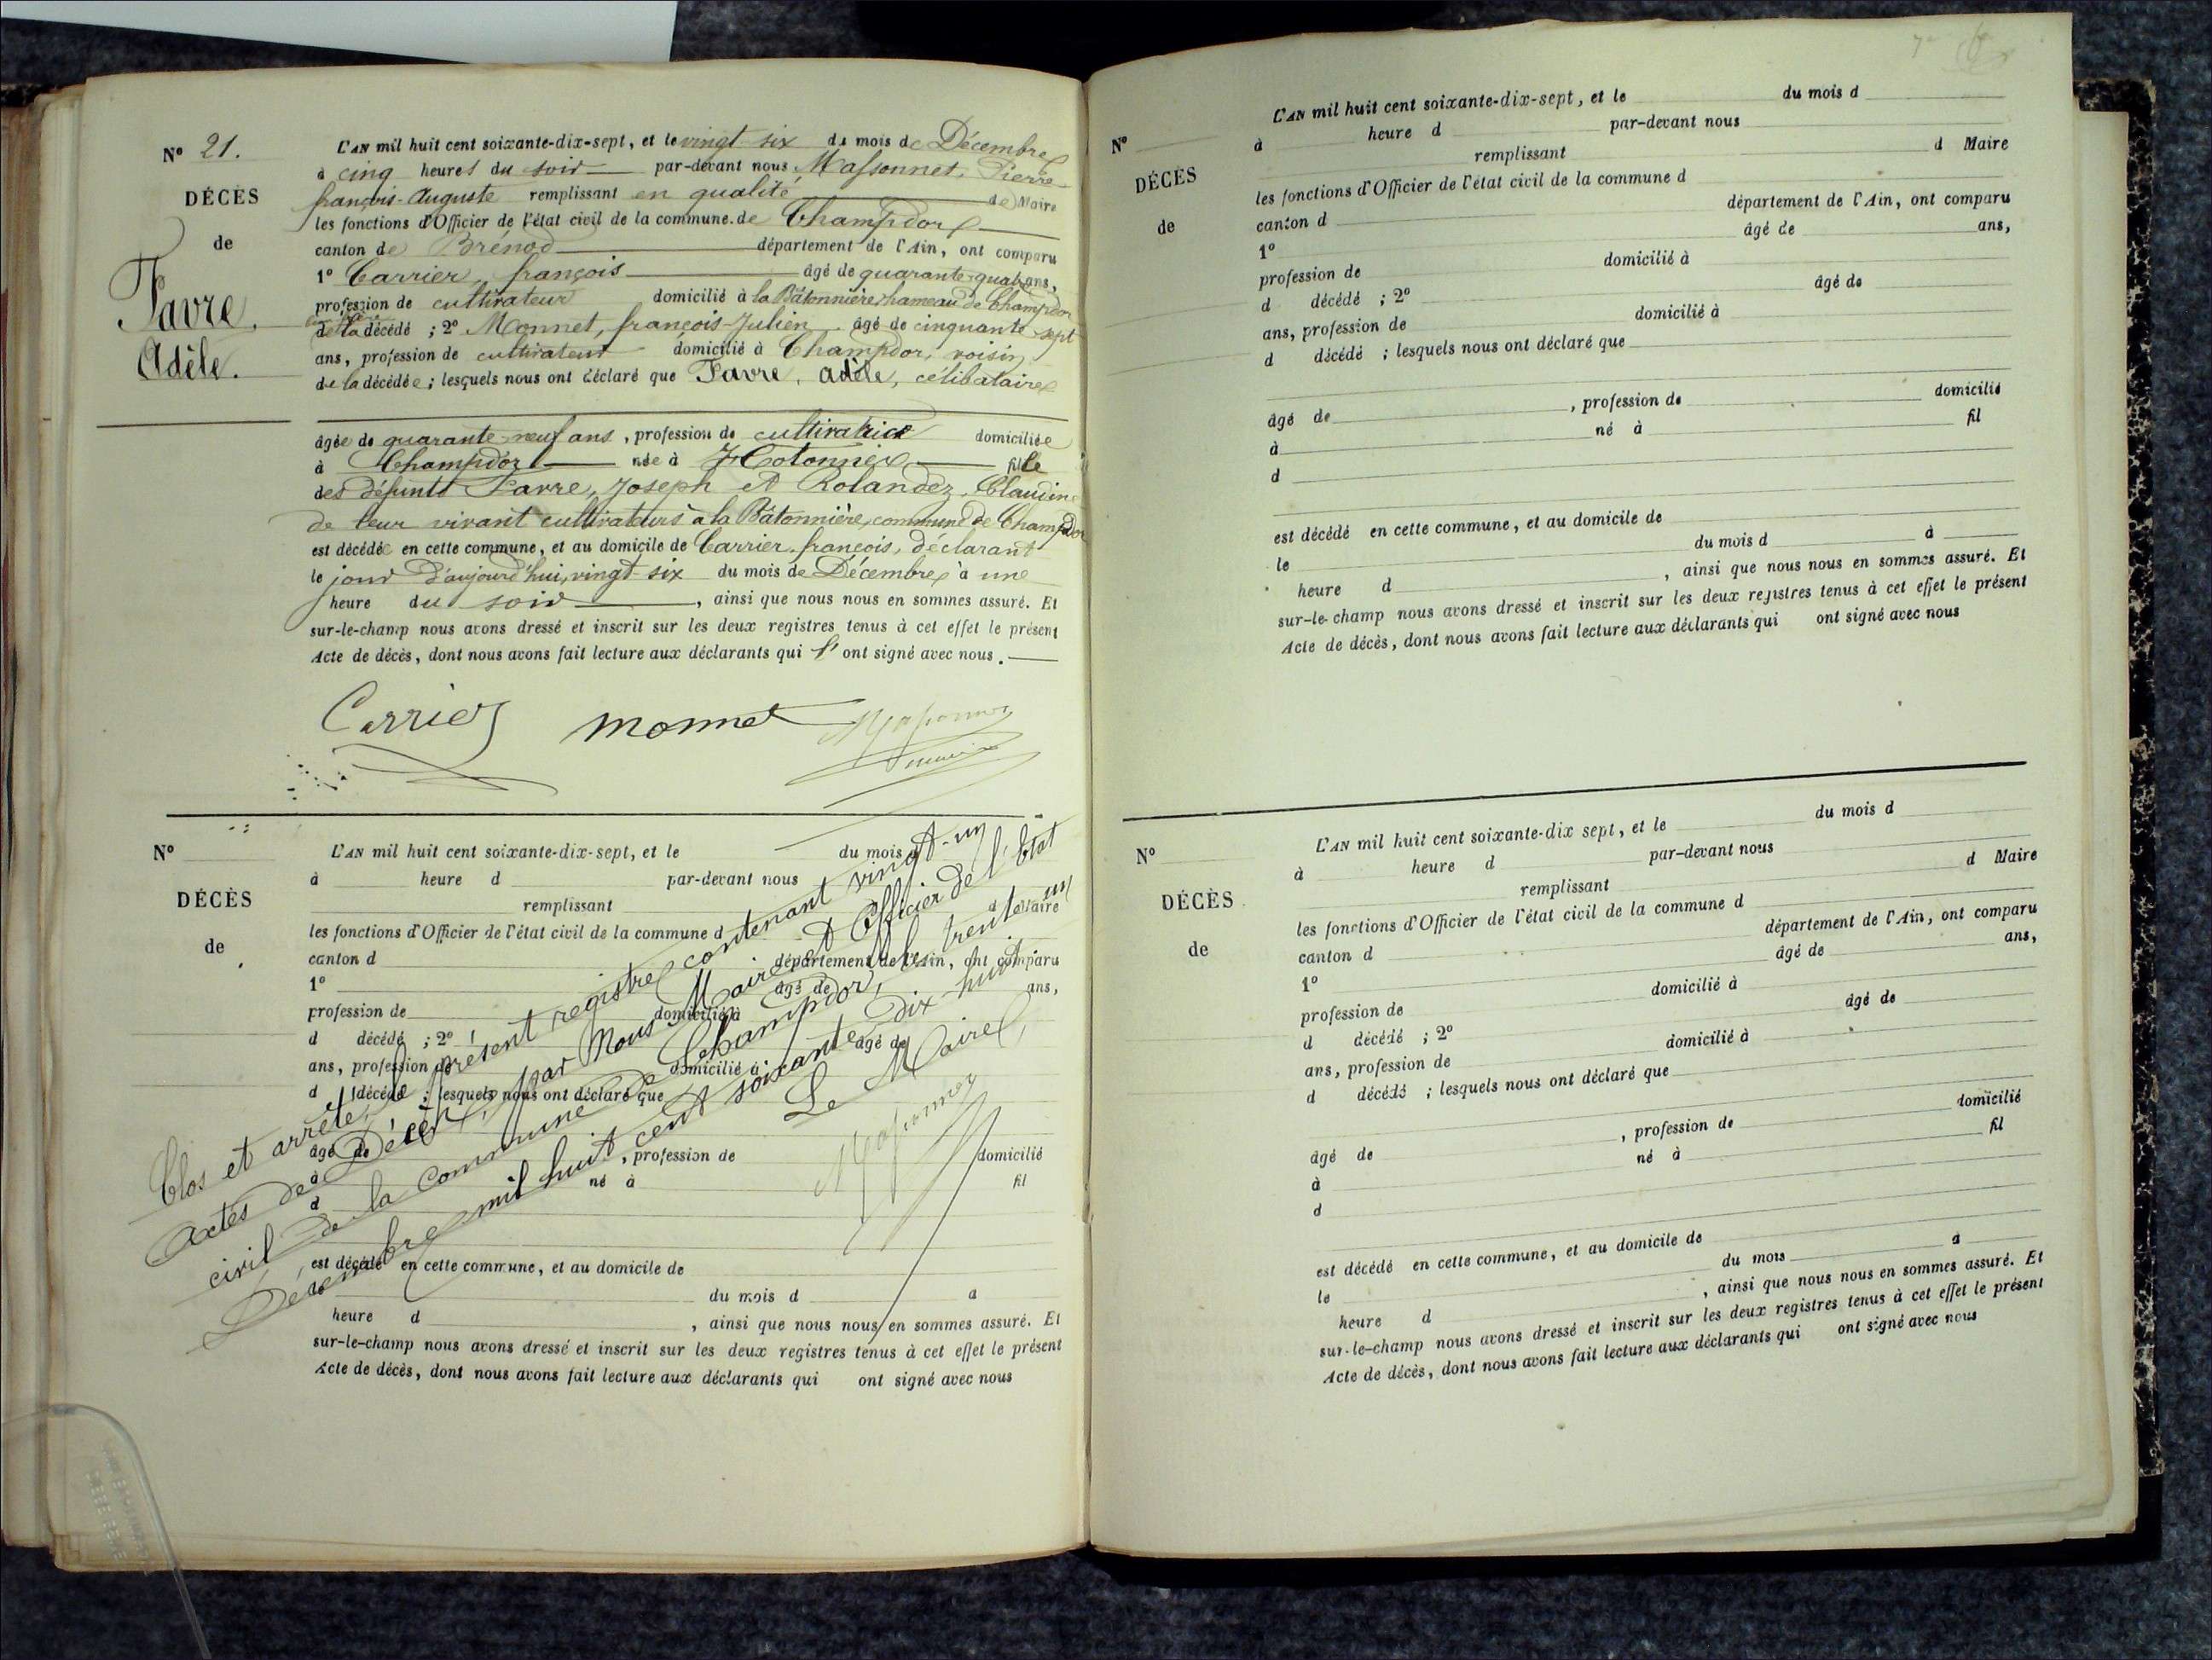 N° 21.
DÉCÈS
de
Favre,
Adèle.
L'AN mil huit cent soixante-dix-sept, et le vingt six du mois de Décembre
à cinq heures du soir par-devant nous Massonnet, Pierre-
françois-Auguste remplissant en qualité de Maire
les fonctions d'Officier de l'état civil de la commune de Champdor
canton de Brénod département de l'Ain, ont comparu
1° Carrier, françois âgé de quarante-quatre ans,
profession de cultivateur domicilié à la Bâtonnière, hameau de Champdor
de la décédé ; 2° Monnet, françois-Julien âgé de cinquante-sept
ans, profession de cultivateur domicilié à Champdor, voisin
de la décédée ; lesquels nous ont déclaré que Favre, Adèle, célibataire
âgée de quarante-neuf ans, profession de cultivatrice domiciliée
à Champdor née à Hotonnes fille
des défunts Favre, Joseph et Rolandez, Claudine
de leur vivant cultivateurs à la Bâtonnière, commune de Champdor
est décédée en cette commune, et au domicile de Carrier, françois, déclarant
le jour d'aujourd'hui, vingt-six du mois de Décembre à une
heure du soir , ainsi que nous nous en sommes assuré. Et
sur-le-champ nous avons dressé et inscrit sur les deux registres tenus à cet effet le présent
Acte de décès, dont nous avons fait lecture aux déclarants qui l'ont signé avec nous.
Carrier Monnet Massonnet
maire
N°
DÉCÈS
de
L'AN mil huit cent soixante-dix-sept, et le du mois d
à heure d par-devant nous
remplissant d Maire
les fonctions d'Officier de l'état civil de la commune d
canton d département de l'Ain, ont comparu
1° âgé de ans,
profession de domicilié à
d décédé ; 2° âgé de
ans, profession de domicilié à
d décédé ; lesquels nous ont déclaré que
âgé de , profession de domicilié
à né à fil
d
est décédé en cette commune, et au domicile de
le du mois d à
heure d , ainsi que nous nous en sommes assuré. Et
sur-le-champ nous avons dressé et inscrit sur les deux registres tenus à cet effet le présent
Acte de décès, dont nous avons fait lecture aux déclarants qui ont signé avec nous
Clos et arrêté, le présent registre contenant vingt-un
actes de Décès, par Nous Maire et Officier de l'état
civil de la commune de Champdor, le trente un
Décembre mil huit cent soixante dix-huit
Le Maire,
Massonnet
N°
DÉCÈS
de
L'AN mil huit cent soixante-dix-sept, et le du mois d
à heure d par-devant nous
remplissant d Maire
les fonctions d'Officier de l'état civil de la commune d
canton d département de l'Ain, ont comparu
1° âgé de ans,
profession de domicilié à
d décédé ; 2° âgé de
ans, profession de domicilié à
d décédé ; lesquels nous ont déclaré que
âgé de , profession de domicilié
à né à fil
d
est décédé en cette commune, et au domicile de
le du mois d à
heure d , ainsi que nous nous en sommes assuré. Et
sur-le-champ nous avons dressé et inscrit sur les deux registres tenus à cet effet le présent
Acte de décès, dont nous avons fait lecture aux déclarants qui ont signé avec nous
N°
DÉCÈS
de
L'AN mil huit cent soixante-dix sept, et le du mois d
à heure d par-devant nous
remplissant d Maire
les fonctions d'Officier de l'état civil de la commune d
canton d département de l'Ain, ont comparu
1° âgé de ans,
profession de domicilié à
d décédé ; 2° âgé de
ans, profession de domicilié à
d décédé ; lesquels nous ont déclaré que
âgé de , profession de domicilié
à né à fil
d
est décédé en cette commune, et au domicile de
le du mois à
heure d , ainsi que nous nous en sommes assuré. Et
sur-le-champ nous avons dressé et inscrit sur les deux registres tenus à cet effet le présent
Acte de décès, dont nous avons fait lecture aux déclarants qui ont signé avec nous